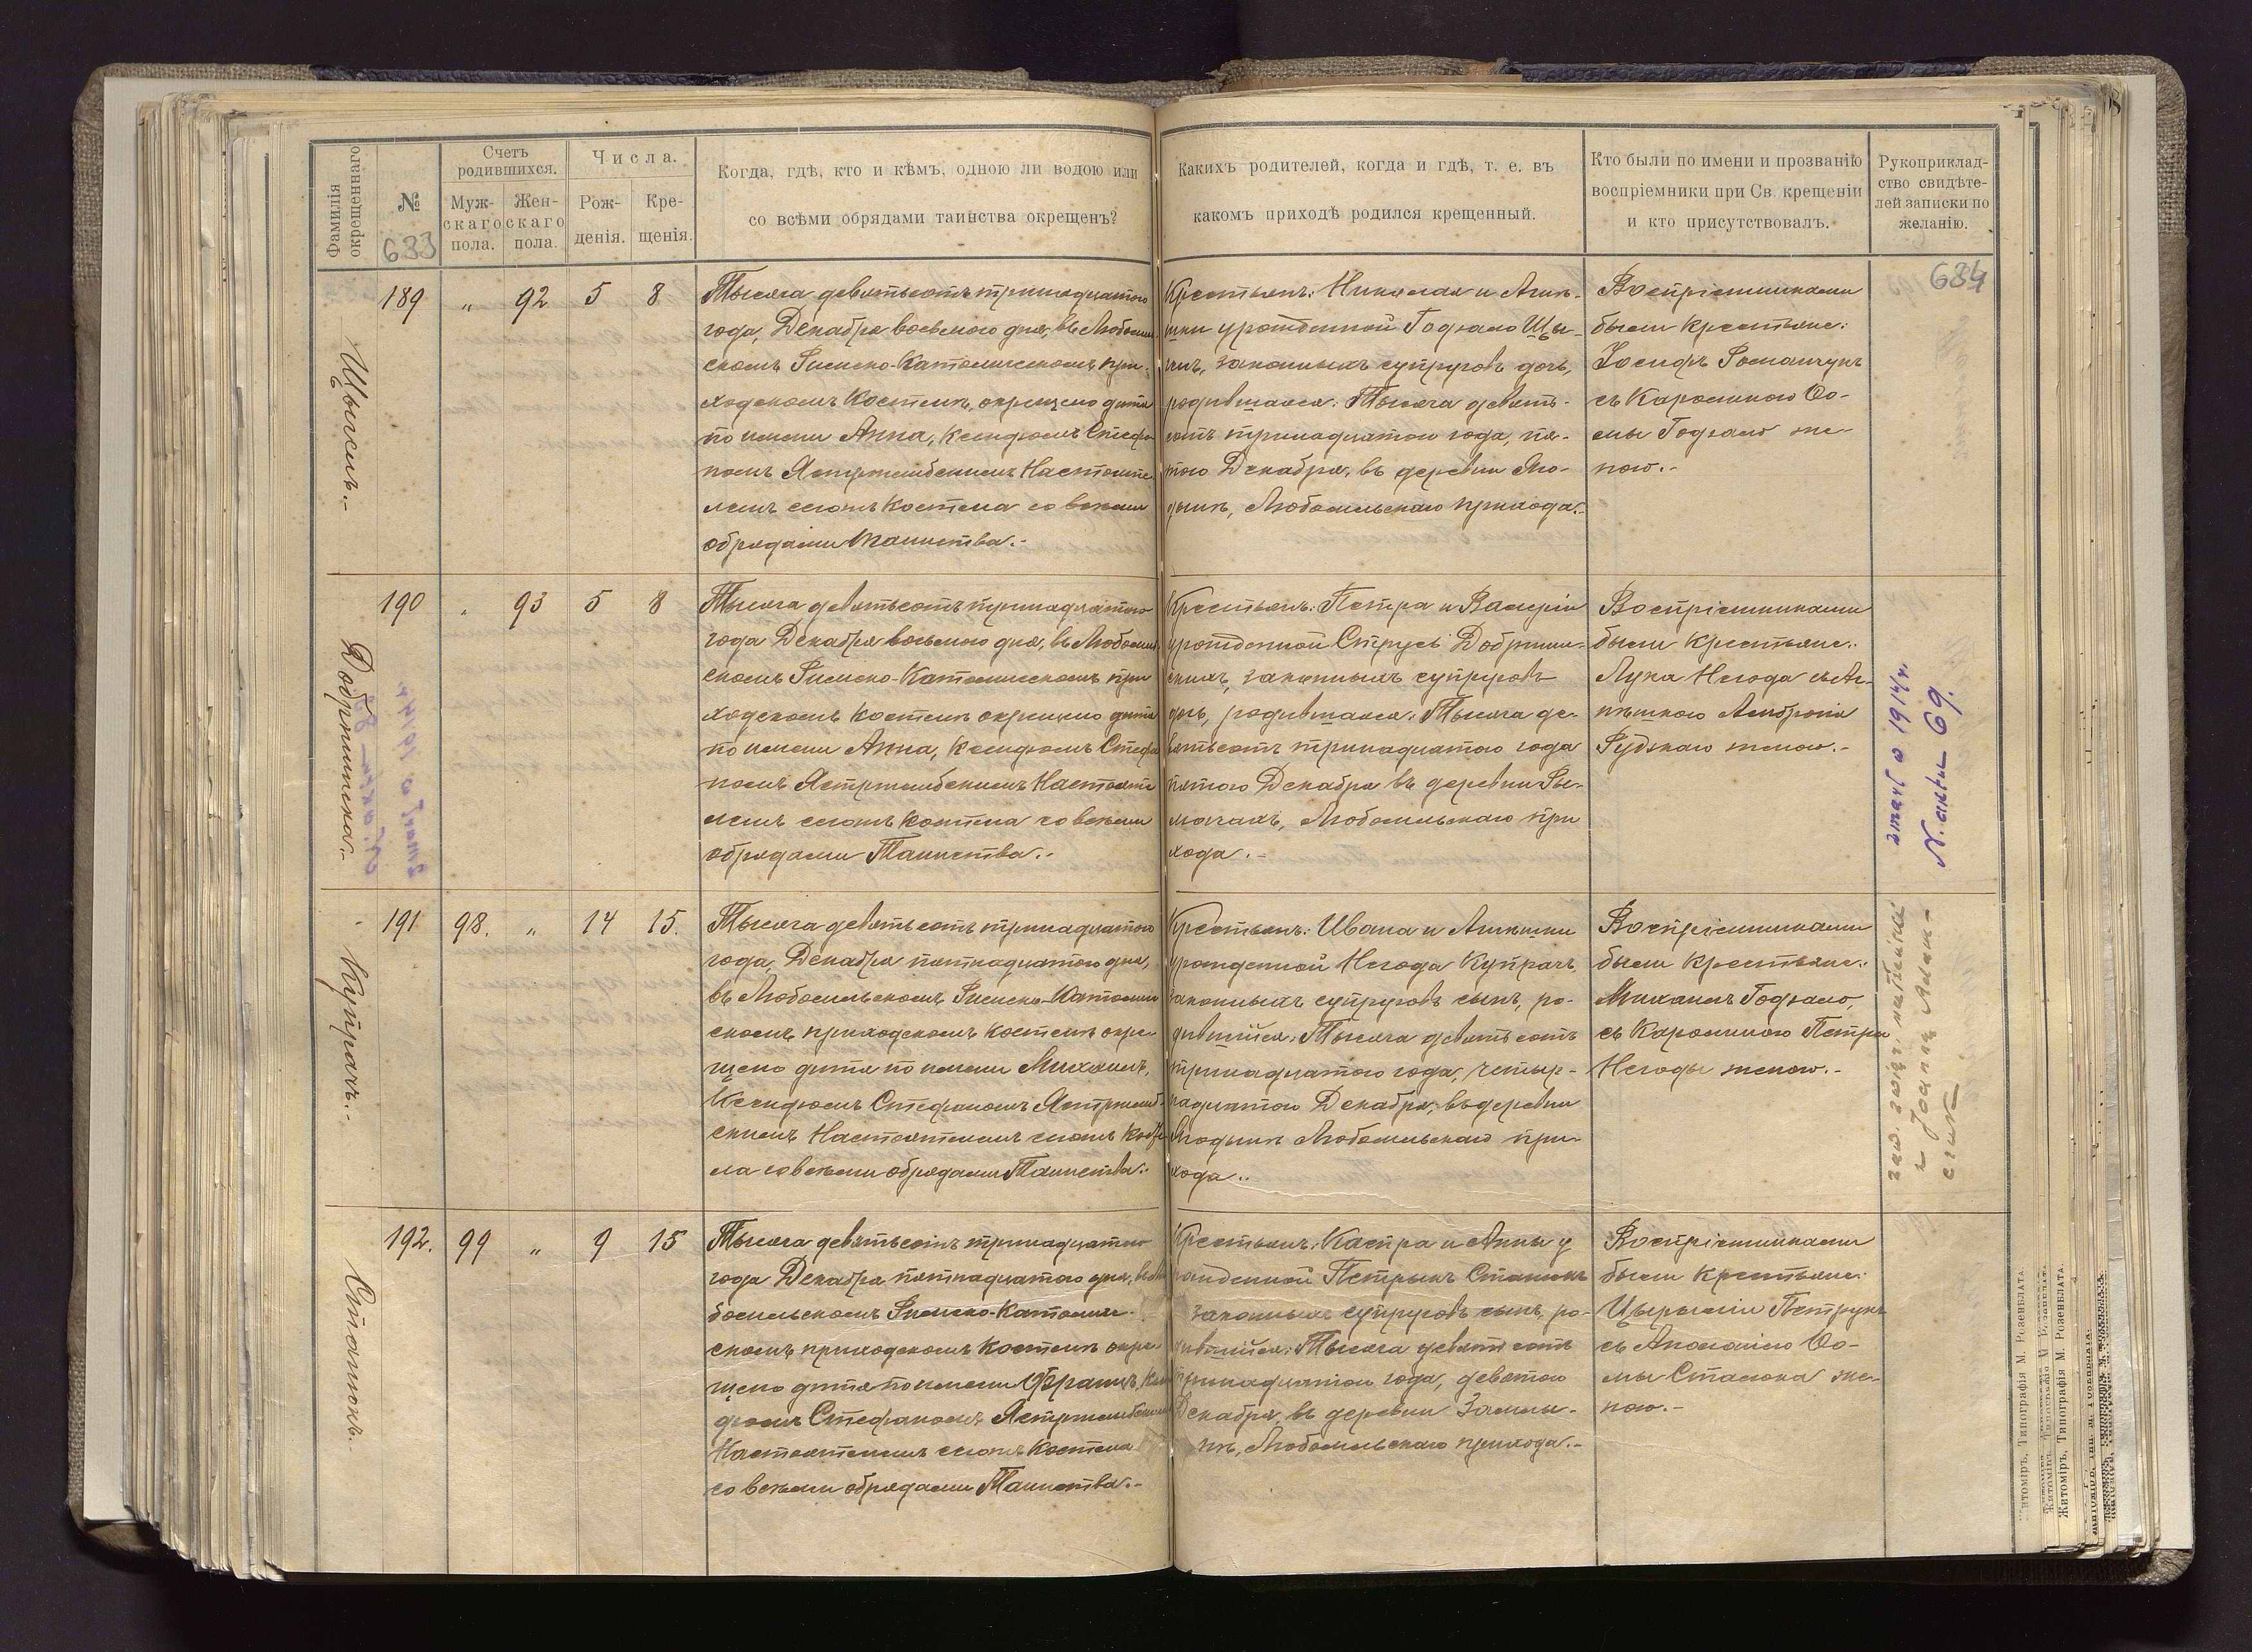 Фамилія окрещеннаго
№
633
Счетъ родившихся.
Муж-
скаго
пола.
Жен-
скаго
пола.
Числа.
Рож-
денія.
Кре-
щенія.
Когда, гдѣ, кто и кѣмъ, одною ли водою или
со всѣми обрядами таинства окрещенъ?
Какихъ родителей, когда и гдѣ, т. е. въ
какомъ приходѣ родился крещенный.
Кто были по имени и прозванію
воспріемники при Св. крещеніи
и кто присутствовалъ.
Рукоприклад-
ство свидѣте-
лей записки по
желанію.
634
189 „ 92 5 8
Тысяча девятьсотъ тринадцатого
года, Декабря восьмого дня, въ Любомль
скомъ Римско-Католическомъ при-
ходскомъ Костелѣ, окрещено дитя
по имени Анна, Ксендзомъ Стефа
номъ Ястржембскимъ Настояте-
лемъ сегожъ Костела со всѣми
обрядами Таинства.-
Крестьянъ: Николая и Агнѣ-
шки урожденной Годзало Щы-
законныхъ супруговъ дочь,
родившаяся: Тысяча девять-
сотъ тринадцатого года, пя-
того Декабря, въ деревни
Любомльскаго прихода.-
Воспріемниками
были крестьяне:
Іосифъ Романчукъ
съ Каролиною Ѳо-
мы Годзало же-
ною.-
190 „ 93 5 8
Добрминска.-
Тысяча девятьсотъ тринадцатого
года Декабря восьмого дня, въ Любомль
скомъ Римско-Католическомъ при
ходскомъ Костелѣ окрещено дитя
по имени Анна, Ксендзомъ Стефа
номъ Ястржембскимъ Настояте
лемъ сегожъ Костела со всѣми
обрядами Таинства.-
Крестьянъ: Петра и Валеріи
урожденной Струсь
законныхъ супруговъ
дочь, родившаяся: Тысяча де-
вятьсотъ тринадцатого года
пятого Декабря въ деревни Ры-
мачахъ, Любомльскаго при
хода.-
Воспріемниками
были крестьяне:
Лука Негода съ Аг-
нѣшкою Амброзія
Рудзкаго женою.-
zmarł a 1914 r.
N. aktu 69.
191 98. „ 14 15.
Купрачъ.-
Тысяча девятьсотъ тринадцатого
года, Декабря пятнадцатого дня,
въ Любомльскомъ Римско-Католиче
скомъ приходскомъ Костелѣ окре-
щено дитя по имени Михаилъ,
Ксендзомъ Стефаномъ Ястржемб-
скимъ Настоятелемъ сегожъ Косте
ла со всѣми обрядами Таинства.-
Крестьянъ: Ивана и Агнѣшки
урожденной Негода Купрачъ,
законныхъ супруговъ сынъ, ро-
дившійся: Тысяча девятьсотъ
тринадцатого года, четыр-
надцатого Декабря, въ деревни
Любомльскаго при-
хода.-
Воспріемниками
были крестьяне:
Михаилъ Годзало,
съ Каролиною Петра
Негоды женою.-
192. 99 „ 9 15
Сталюкъ.-
Тысяча девятьсотъ тринадцатого
года Декабря пятнадцатого дня, въ Лю
бомльскомъ Римско-Католиче-
скомъ приходскомъ Костелѣ окре-
щено дитя по имени Францъ, Ксен
дзомъ Стефаномъ Ястржембскимъ
Настоятелемъ сегожъ Костела
со всѣми обрядами Таинства.-
Крестьянъ: Каспра и Анны у
рожденной Петрукъ Сталюкъ
законныхъ супруговъ сынъ, ро-
дившійся: Тысяча девятьсотъ
тринадцатого года, девятого
Декабря, въ деревни Замлы-
нѣ, Любомльскаго прихода.-
Воспріемниками
были крестьяне:
Петрукъ
съ Ѳо-
мы Сталюка же-
ною.-
Житоміръ, Типографія М. Розенблата.